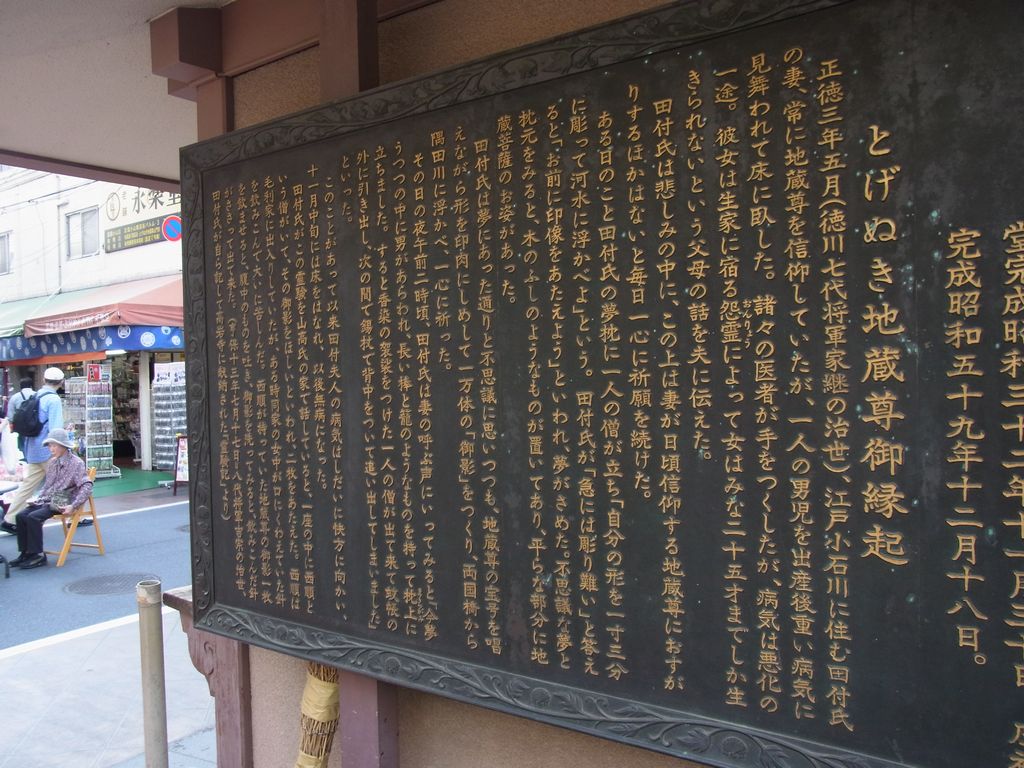 堂完成昭和三十二年十一月三十日
完成昭和五十九年十二月十八日。
とげぬき地蔵尊御縁起
正徳三年五月(徳川七代将軍家継の治世)、江戸小石川に住む田付氏
の妻、常に地蔵尊を信仰していたが、一人の男児を出産後重い病気に
見舞われて床に臥した。諸々の医者が手をつくしたが、病気は悪化の
一途。彼女は生家に宿る怨霊によって女はみな二十五才までしか生
おんりょう
きられないという父母の話を夫に伝えた。
田付氏は悲しみの中に、この上は妻が日頃信仰する地蔵尊におすが
りするほかはないと毎日一心に祈願を続けた。
ある日のこと田付氏の夢枕に一人の僧が立ち「自分の形を一寸三分
に彫って河水に浮かべよ」という。田付氏が「急には彫り難い」と答え
ると、「お前に印像をあたえよう」といわれ、夢がさめた。不思議な夢と
枕元をみると、木のふしのようなものが置いてあり、平らな部分に地
蔵菩薩のお姿があった。
田付氏は夢にあった通りと不思議に思いつつも、地蔵尊の宝号を唱
えながら形を印肉にしめして一万体の「御影」をつくり、両国橋から
隅田川に浮かべ、一心に祈った。
その日の夜午前二時頃、田付氏は妻の呼ぶ声にいってみると、「今夢
うつつの中に男があらわれ、長い棒と籠のようなものを持って枕上に
立ちました。すると香染の袈裟をつけた一人の僧が出て来て敷居の
外に引き出し、次の間で錫杖で背中をついて追い出してしまいました」
といった。
このことがあって以来田付夫人の病気はしだいに快方に向かい、
十一月中旬には床をはなれ、以後無病になった。
田付氏がこの霊験を山高氏の家で話していると、一座の中に西順と
いう僧がいて、その御影をほしいといわれ、二枚をあたえた。西順は
毛利家に出入りしていたが、ある時同家の女中が口にくわえた針
を飲みこんで大いに苦しんだ。西順が持っていた地蔵尊の御影一枚
を飲ませると、腹中のものを吐き、御影を洗ってみると、飲んだ針
がささって出て来た。
田付氏自ら記して高岩寺に献納